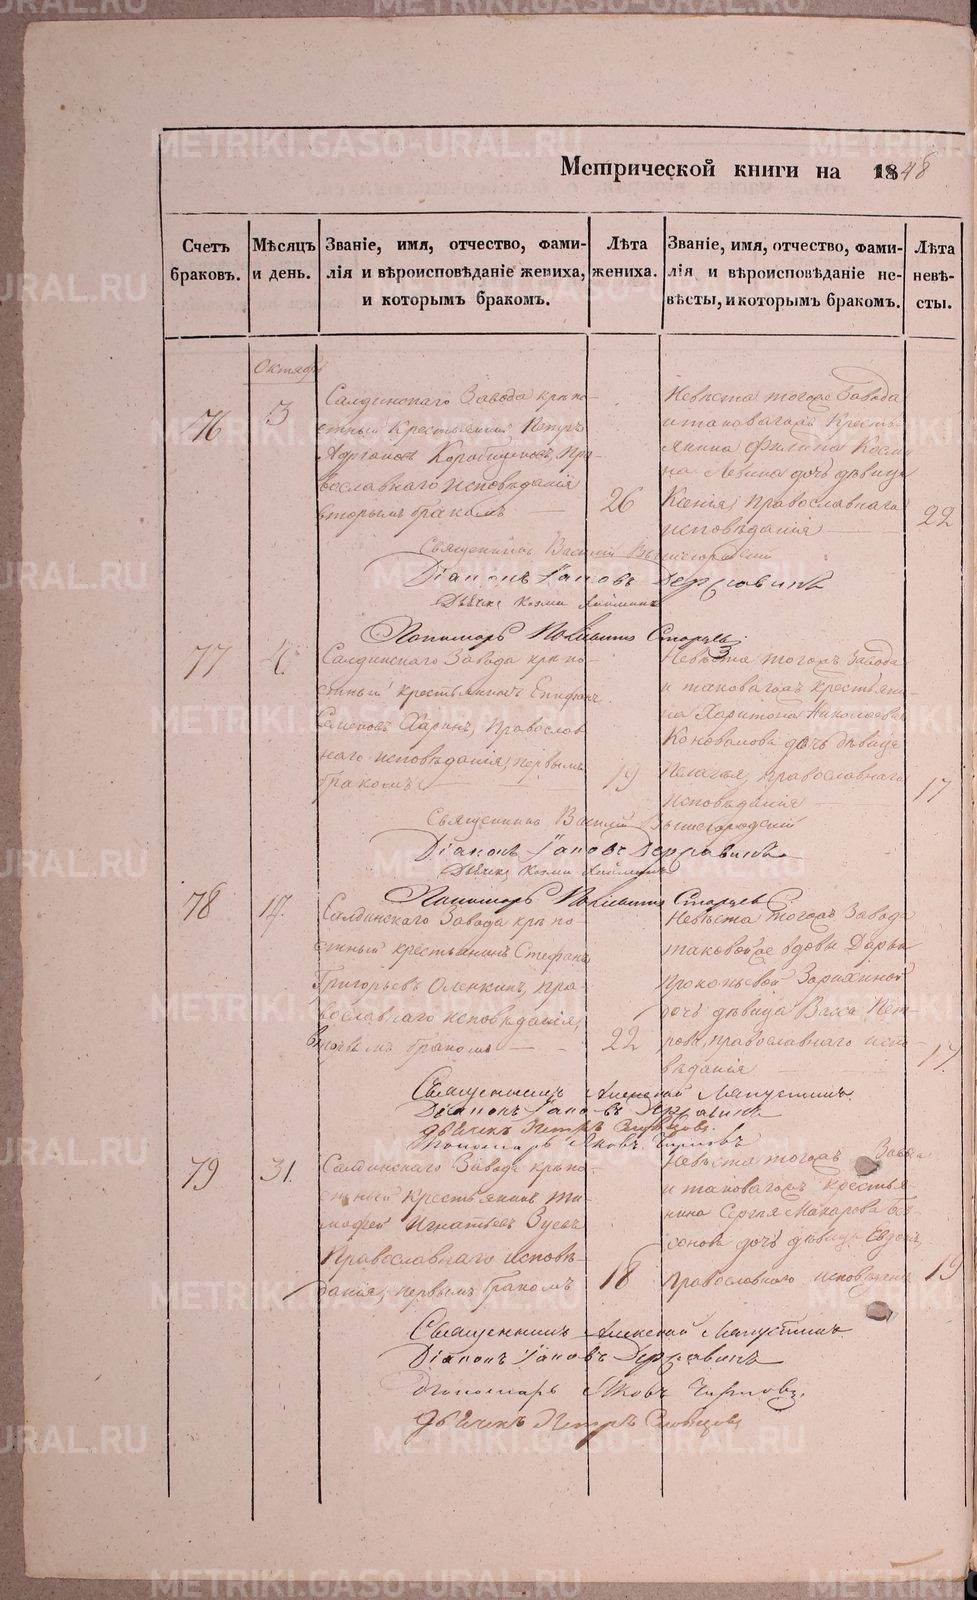 Метрической книги на 1848
Счетъ браковъ.
Мѣсяцъ и день.
Званіе, имя, отчество, фами-
лія и вѣроисповѣданіе жениха,
и которымъ бракомъ.
Лѣта
жениха.
Званіе, имя, отчество, фами-
лія и вѣроисповѣданіе не-
вѣсты, и которымъ бракомъ.
Лѣта
невѣ-
сты.
Октябрь
76
3
Салдинскаго Завода крѣпо-
стный Крестьянинъ Петръ
православнаго исповѣданія
вторымъ бракомъ
26
Невѣста тогожъ Завода
и таковагожъ Кресть-
янина Филипа Козми
на Левина дочь дѣвица
Ксенія, православнаго
исповѣданія
22
Священникъ Василій Вышегородскій
Діаконъ Іаковъ Державинъ
Дьячекъ Козма
Пономарь Старцевъ
77
4.
Салдинскаго Завода крѣпо-
стный крестьянинъ Епифанъ
Семеновъ Харинъ, Православ
наго исповѣданія, первымъ
бракомъ
19
Невѣста тогожъ Завода
и таковагожъ крестьяни-
на Харитона Николаева
Коновалова дочь дѣвица
Пелагѣя, православнаго
исповѣданія
17
Священникъ Василій Вышегородскій
Діаконъ Іаковъ Державинъ
Дьячекъ Козма
Пономарь Старцевъ
78
17.
Салдинскаго Завода крѣпо
стный крестьянинъ Стефанъ
Григорьевъ Оленкинъ, пра
вославнаго исповѣданія,
бракомъ
22
Невѣста тогожъ Завода
таковой же вдовы Дарьи
Прокопьевой
дочь дѣвица Васса Пет-
рова, православнаго испо-
вѣданія
17.
Священникъ Алексей Мапустинъ
Діаконъ Іаковъ Державинъ
Дьячекъ Петръ Словцовъ
Пономарь Яковъ
79
31.
Салдинскаго Завода крѣпо-
стный крестьянинъ Ти-
мофей Игнатьевъ Зуевъ
Православнаго исповѣ-
данія, первымъ бракомъ
18
Невѣста тогожъ Завода
и таковагожъ крестья-
нина Сергѣя Макарова Без-
сонова дочь дѣвица
православнаго исповѣданія
19
Священникъ Алексей Мапустинъ
Діаконъ Іаковъ Державинъ
Пономарь Яковъ
Дьячекъ Петръ Словцовъ
METRIKI.GASO-URAL.RU